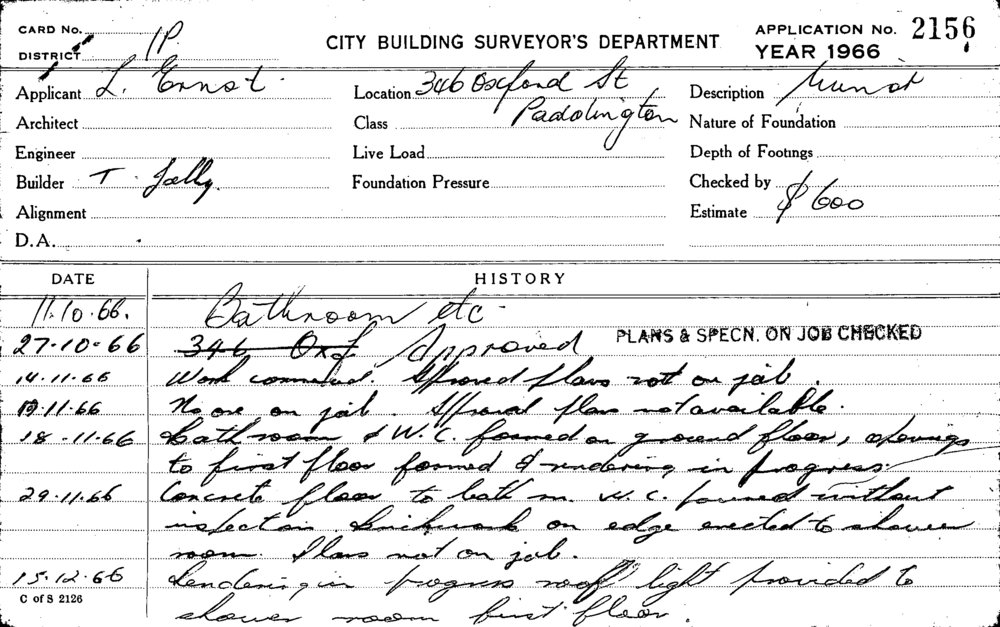 CARD No.
DISTRICT 1P.
CITY BUILDING SURVEYOR'S DEPARTMENT
APPLICATION No. 2156
YEAR 1966
Applicant L. Ernst
Location 346 Oxford St
Paddington
Description
Architect
Class
Nature of Foundation
Engineer
Live Load
Depth of Footings
Builder T. Jolly
Foundation Pressure
Checked by
Alignment
Estimate $600
D.A.
DATE
HISTORY
11.10.66. Bathroom etc
27-10-66 346 Oxf Approved PLANS & SPECN. ON JOB CHECKED
14.11.66 Work commenced. Approved plans not on job.
No one on job. Approval plan not available.
18.11.66 Bathroom & W.C. formed on ground floor, openings
to first floor formed & rendering in progress.
29.11.66 Concrete floor to bath rm. W.C. poured without
inspection. Brickwork on edge erected to shower
room. Plans not on job.
15.12.66 Rendering in progress roof light provided to
C of S 2126
shower room first floor.